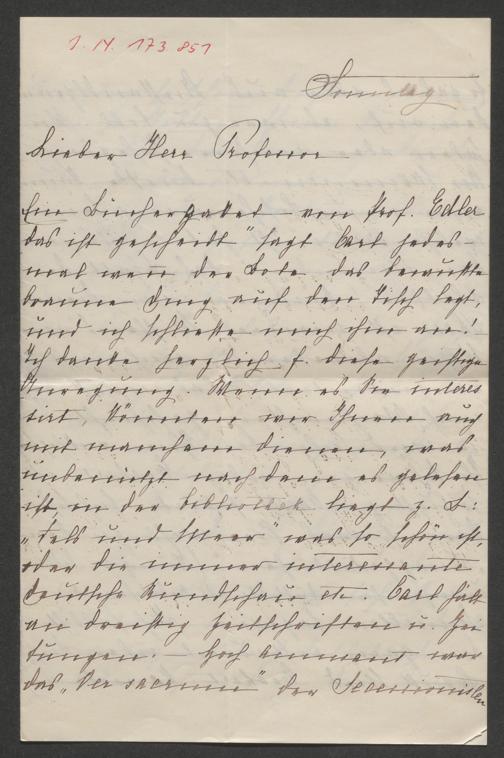 I. N. 173 851
Sonntag
Lieber Herr Professor
Ein Bücherpaket von Prof. Edler
das ist gescheidt" sagt Carl jedes-
mal wen der Bote das bewußte
braune Ding auf den Tisch legt,
und ich schließe mich ihm an!
Ich danke herzlich f. diese geistige
Anregung. Wenn es Sie interes
sirt, könnten wir Ihnen auch
mit manchem dienen, was
unbenützt nach dem es gelesen
ist, in der Bibliothek liegt z. B:
„Fels und Meer" was so schön ist,
oder die immer interessante
deutsche Rundschau etc. Carl hält
an dreißig Zeitschriften u. Zei
tungen. – Hoch amusant war
das „Ver sacrum" der Secessionisten